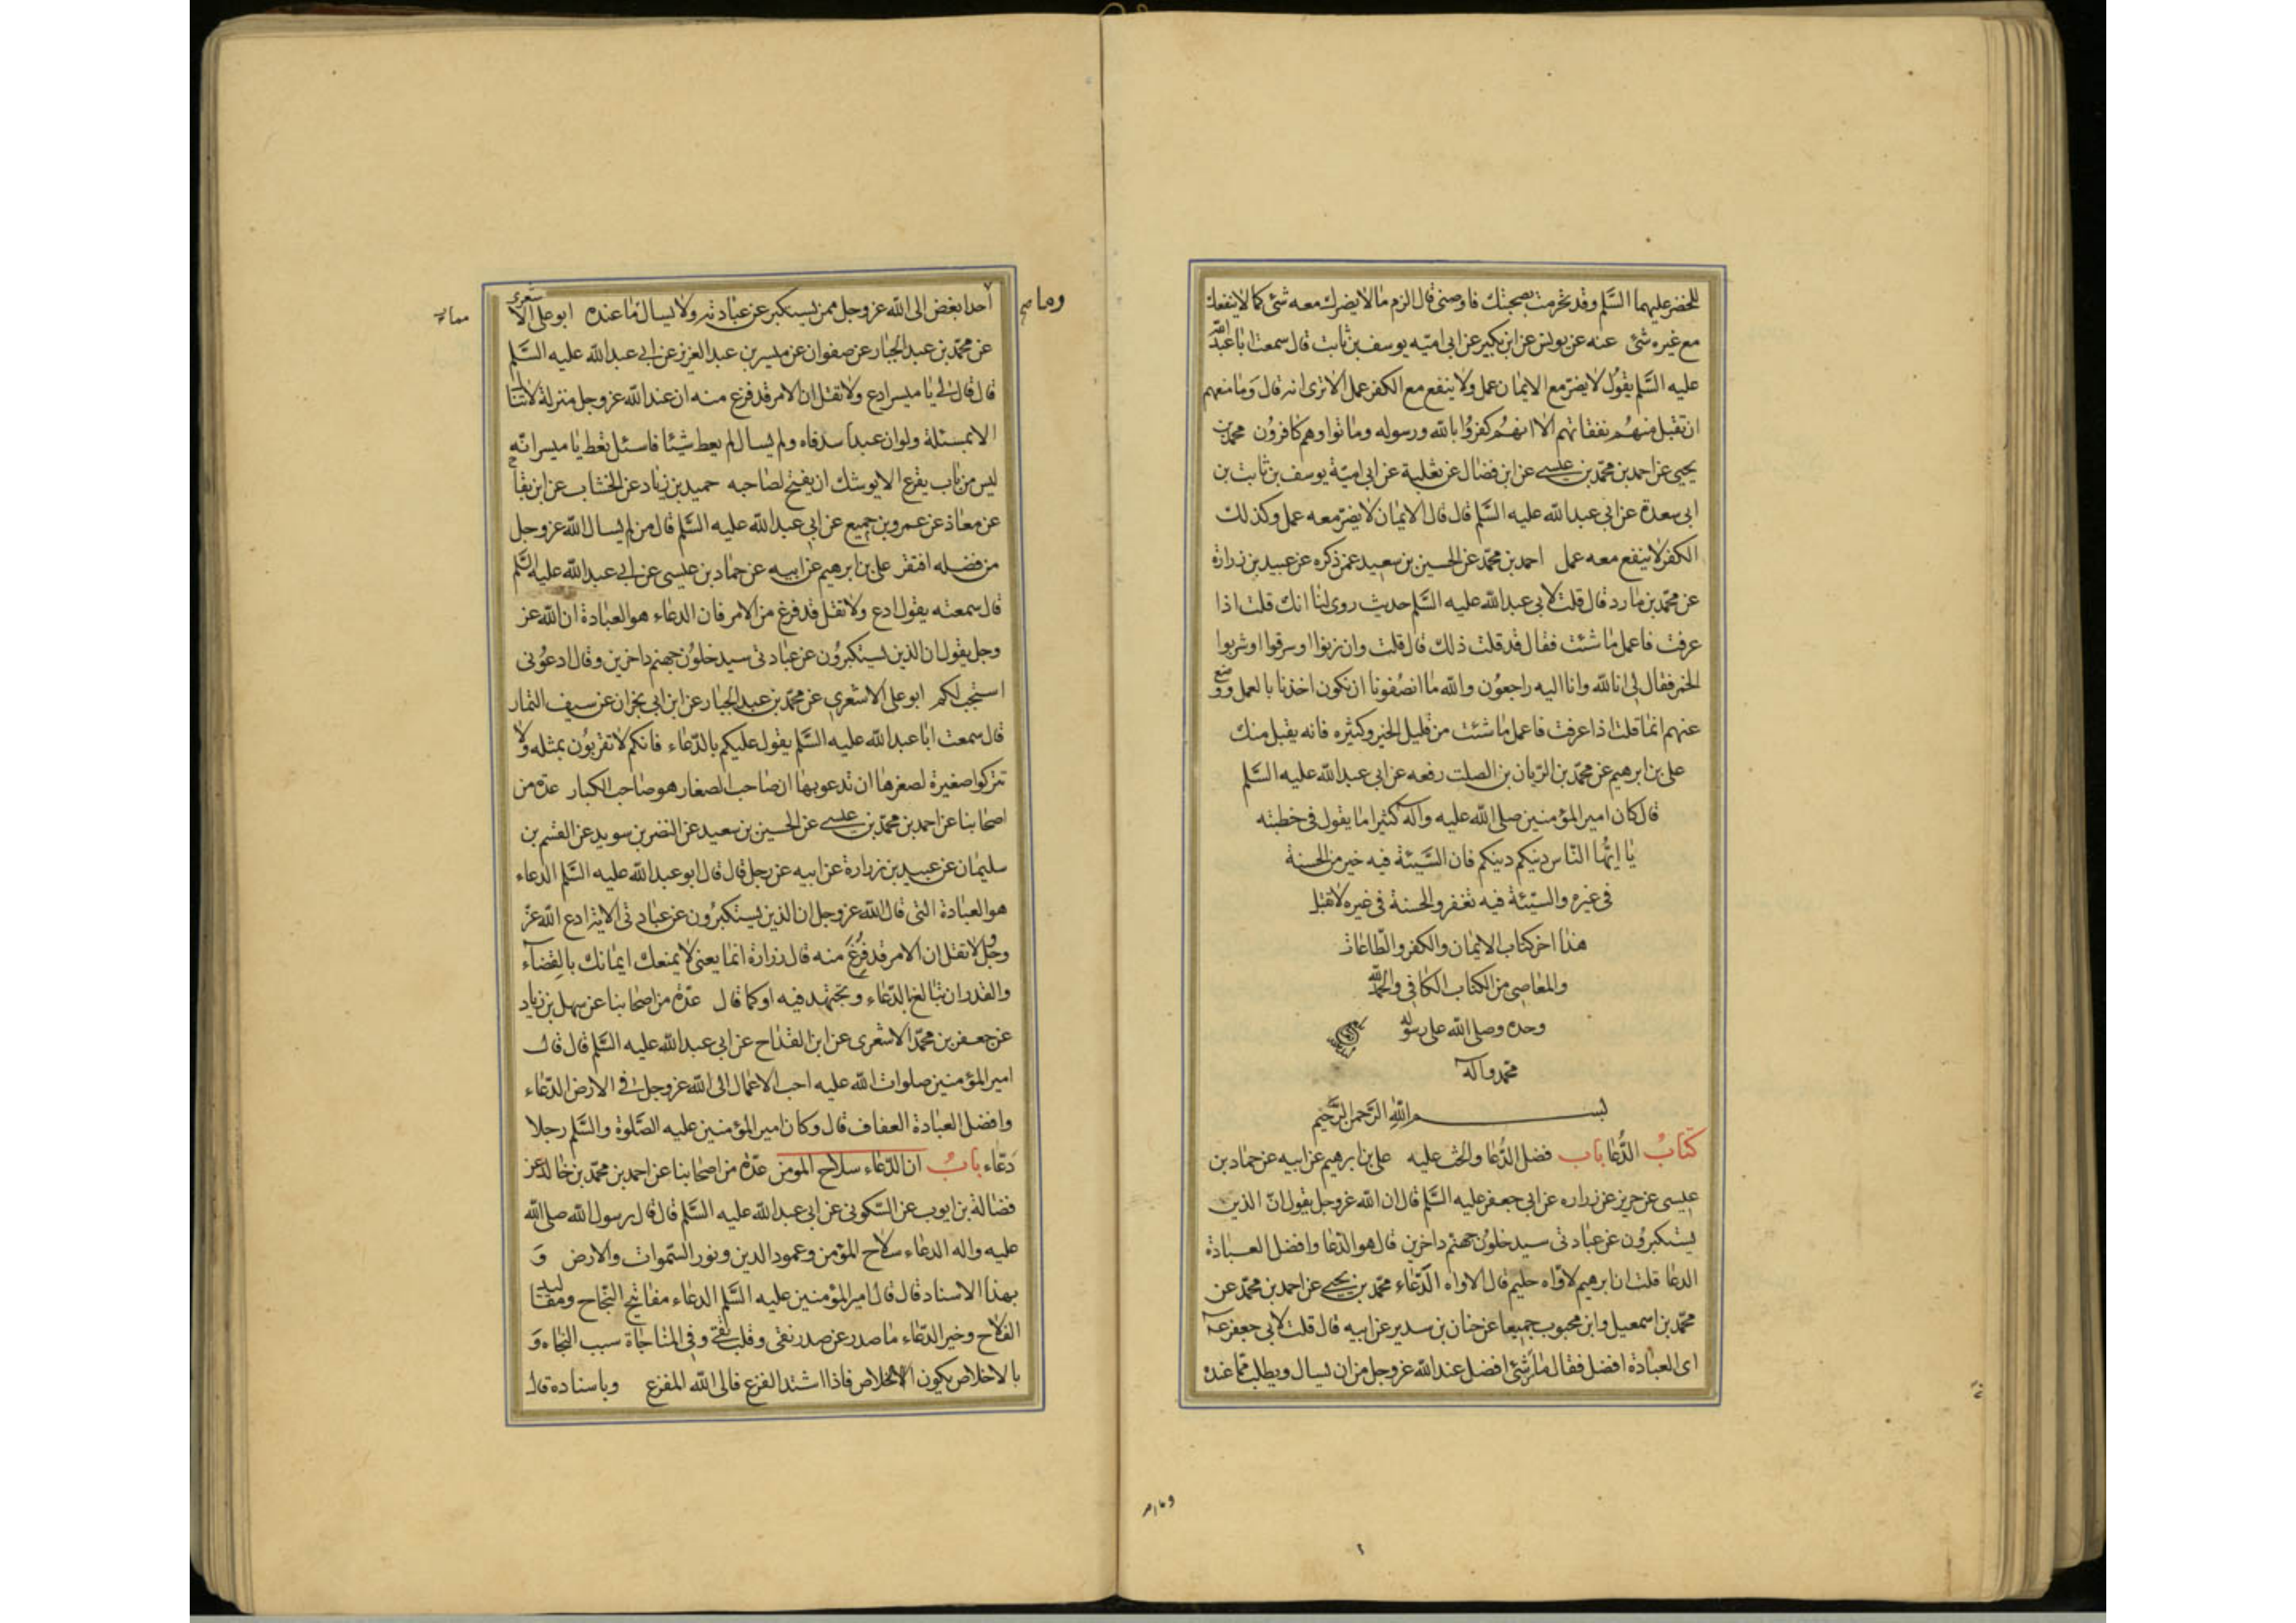 للخضر عليهما السَّلم وقد تحرمت بصحبتك فاوصنى قال الزم مالا يضرك معه شئ كما لا ينفعك
مع غيره شئ عنه عن يونس عن ابن بكير عن ابى اميّه يوسف بن ثابت قال سمعت ابا عبد الله
عليه السَّلم يقول لا يضرّ مع الايمان عمل ولا ينفع مع الكفر عمل الا ترى انه قال وما منعهم
ان تقبل منهم نفقاتهم الا انهم كفروا بالله ورسوله وماتوا وهم كافرون محمد بن
يحيى عن احمد بن محمّد بن عيسى عن ابن فضال عن ثعلبة عن ابى اميّة يوسف بن ثابت بن
ابى سعدة عن ابى عبد الله عليه السَّلم قال قال الايمان لا يضرّ معه عمل وكذلك
الكفر لا ينفع معه عمل احمد بن محمّد عن الحسين بن سعيد عمن ذكره عن عبيد بن زرارة
عن محمّد بن مارد قال قلت لابى عبد الله عليه السَّلم حديث روى لنا انك قلت اذا
عرفت فاعمل ما شئت فقال قد قلت ذلك قال قلت وان زنوا او سرقوا او شربوا
الخمر فقال لى انا لله وانا اليه راجعون والله ما انصفونا ان نكون اخذنا بالعمل ووضع
عنهم انما قلت اذا عرفت فاعمل ما شئت من قليل الخير وكثيره فانه يقبل منك
على بن ابرهيم عن محمّد بن الريان بن الصلت رفعه عن ابى عبد الله عليه السَّلم
قال كان امير المؤمنين صلى الله عليه وآله كثيرا ما يقول فى خطبته
يا ايها النّاس دينكم دينكم فان السَّيئة فيه خير من الحسنة
فى غيره والسيّئة فيه تغفر والحسنة فى غيره لا تقبل
هذا اخر كتاب الايمان والكفر والطّاعات
والمعاصى من الكتاب الكافى والحمد لله
وحده وصلى الله على رسوله
محمّد وآله
بسم الله الرَّحمن الرَّحيم
كتابُ الدُّعا باب فضل الدُّعا والحث عليه على بن ابرهيم عن ابيه عن حماد بن
عيسى عن حريز عن زراره عن ابى جعفر عليه السَّلم قال ان الله عز وجل يقول انّ الذين
يستكبرون عن عبادتى سيدخلون جهنم داخرين قال هو الدّعا وافضل العبادة
الدعا قلت ان ابرهيم لاوّاه حليم قال الاواه الدَّعّاء محمّد بن يحيى عن احمد بن محمّد عن
محمّد بن اسمعيل وابن محبوب جميعا عن حنان بن سدير عن ابيه قال قلت لابى جعفر عـ
اى العبادة افضل فقال ما من شئ افضل عند الله عز وجل من ان يسال ويطلب مما عنده
وما
احدا بغض الى الله عز وجل ممن يستكبر عن عبادته ولا يسال ما عنده ابو على الاشعرى
عن محمّد بن عبد الجبار عن صفوان عن ميسر بن عبد العزيز عن ابى عبد الله عليه السَّلم
قال قال لى يا ميسر ادع ولا تقل ان الامر قد فرغ منه ان عند الله عز وجل منزلة لا تنال
الا بمسئلة ولو ان عبدا سد فاه ولم يسال لم يعط شيئا فاسئل تعط يا ميسر انّه
ليس من باب يقرع الا يوشك ان يفتح لصاحبه حميد بن زياد عن الخشاب عن ابن بقاح
عن معاذ عن عمرو بن جميع عن ابى عبد الله عليه السَّلم قال من لم يسال الله عز وجل
من فضله افتقر على بن ابرهيم عن ابيه عن حماد بن عيسى عن ابى عبد الله عليه السَّلم
قال سمعته يقول ادع ولا تقل قد فرغ من الامر فان الدعاء هو العبادة ان الله عز
وجل يقول ان الذين يستكبرون عن عبادتى سيدخلون جهنم داخرين وقال ادعونى
استجب لكم ابو على الاشعرى عن محمّد بن عبد الجبار عن ابن ابى نجران عن سيف التمار
قال سمعت ابا عبد الله عليه السَّلم يقول عليكم بالدّعاء فانكم لا تقربون بمثله ولا
تتركوا صغيرة لصغرها ان تدعو بها ان صاحب الصغار هو صاحب الكبار عدة من
اصحابنا عن احمد بن محمّد بن عيسى عن الحسين بن سعيد عن النضر بن سويد عن القسم بن
سليمان عن عبيد بن زرارة عن ابيه عن رجل قال قال ابو عبد الله عليه السَّلم الدعاء
هو العبادة التى قال الله عز وجل ان الذين يستكبرون عن عبادتى الاية ادع الله عزّ
وجل ولا تقل ان الامر قد فرغ منه قال زرارة انما يعنى لا يمنعك ايمانك بالقضاء
والقدر ان تبالغ بالدّعاء وتجتهد فيه او كما قال عدّة من اصحابنا عن سهل بن زياد
عن جعفر بن محمّد الاشعرى عن ابن القداح عن ابى عبد الله عليه السَّلم قال قال
امير المؤمنين صلوات الله عليه احب الاعمال الى الله عز وجل فى الارض الدّعاء
وافضل العبادة العفاف قال وكان امير المؤمنين عليه الصَّلوة والسَّلم رجلا
دعّاء بابُ ان الدّعاء سلاح المومن عدّة من اصحابنا عن احمد بن محمّد بن خالد عن
فضالة بن ايوب عن السّكونى عن ابى عبد الله عليه السَّلم قال قال رسول الله صلى الله
عليه واله الدعاء سلاح المؤمن وعمود الدين ونور السّموات والارض وَ
بهذا الاسناد قال قال امير المؤمنين عليه السَّلم الدعاء مفاتيح النّجاح ومقاليد
الفلاح وخير الدّعاء ما صدر عن صدر نقى وقلب تقى وفى المناجاة سبب النجاه وَ
بالاخلاص يكون الخلاص فاذا اشتد الفزع فالى الله المفزع وباسناده قال